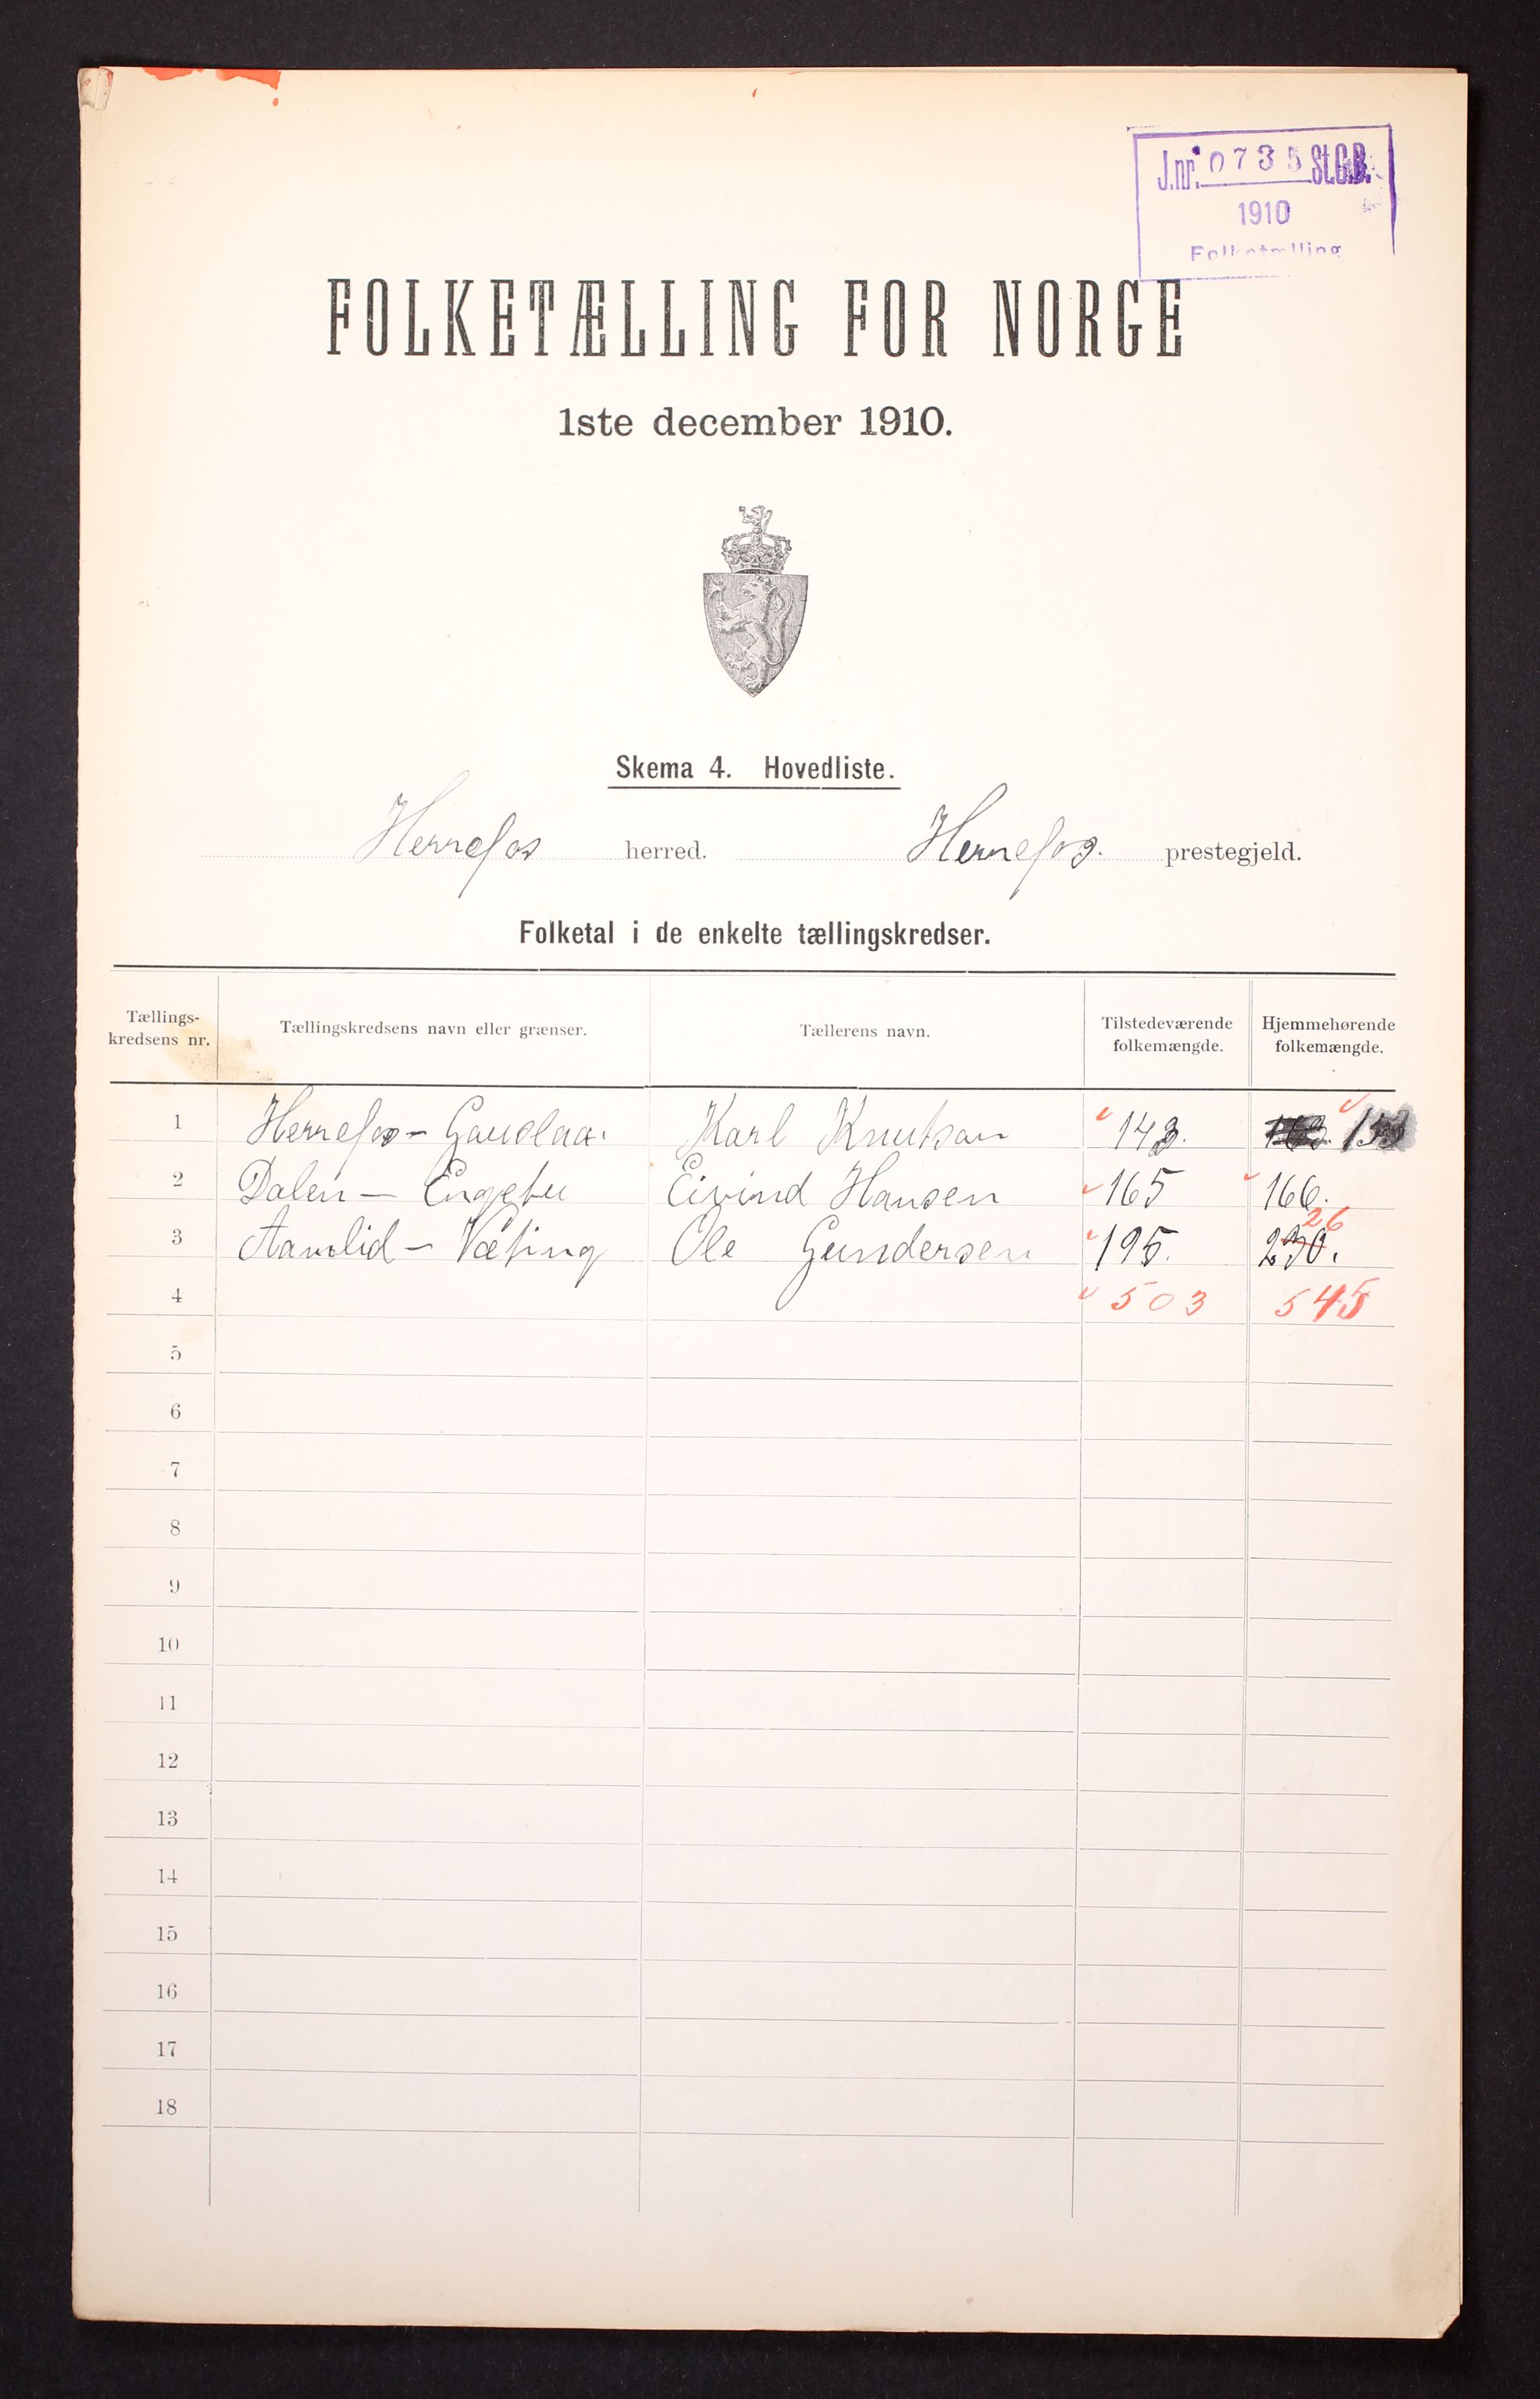 J.nr. 0735 St.C.B.
1910
Folketælling
FOLKETÆLLING FOR NORGE
1ste december 1910.
Skema 4. Hovedliste.
Herrefos herred. Herrefos. prestegjeld.
Folketal i de enkelte tællingskredser.
Tællings-
kredsens nr.
Tællingskredsens navn eller grænser.
Tællerens navn.
Tilstedeværende
folkemængde.
Hjemmehørende
folkemængde.
1 Herrefos - Gauslaa. Karl Knutson 143. 153
2 Dalen - Engebu Eivind Hansen 165 166.
26
3 Aamlid - Væting Ole Gundersen 195. 230.
4 503 545
5
6
7
8
9
10
11
12
13
14
15
16
17
18